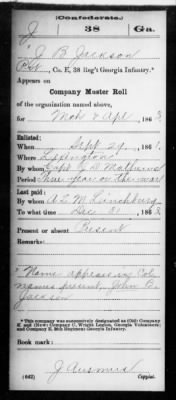 (Confederate.)
J 38 Ga.
J B Jackson
Pvt, Co. E, 38 Reg't Georgia Infantry.*
Appears on
Company Muster Roll
of the organization named above,
for Mch & Apl, 1863.
Enlisted:
When Sept 29, 1861.
Where
By whom Capt G D Mathews
Period three years or the war
Last paid:
By whom
To what time Dec 31, 1862.
Present or absent Present
Remarks:
Name appears in Col
names present, John B.
Jackson
*This company was successively designated as (Old) Company
E, 38th Regiment Georgia Infantry.
Book mark:
(642) Copyist.